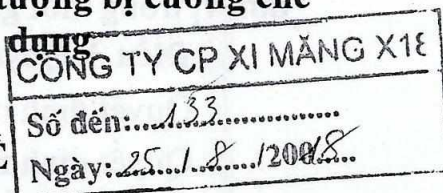 tượng bị cưỡng chế
dụng
CÔNG TY CP XI MĂNG X18
Số đến:....133................
Ngày: 25..../..8...../2008....